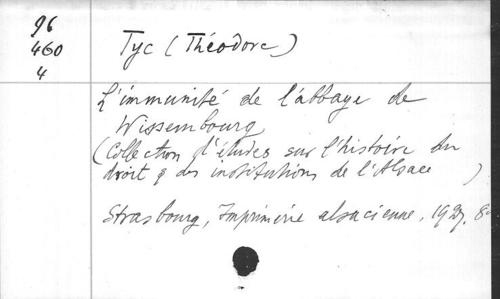 96
460
4
Tyc (Théodore)
L'immunité de l'abbaye de
Wissembourg
(Collection d'études sur l'histoire du
droit & des institutions de l'Alsace )
Strasbourg, Imprimerie alsacienne, 1927. 8º